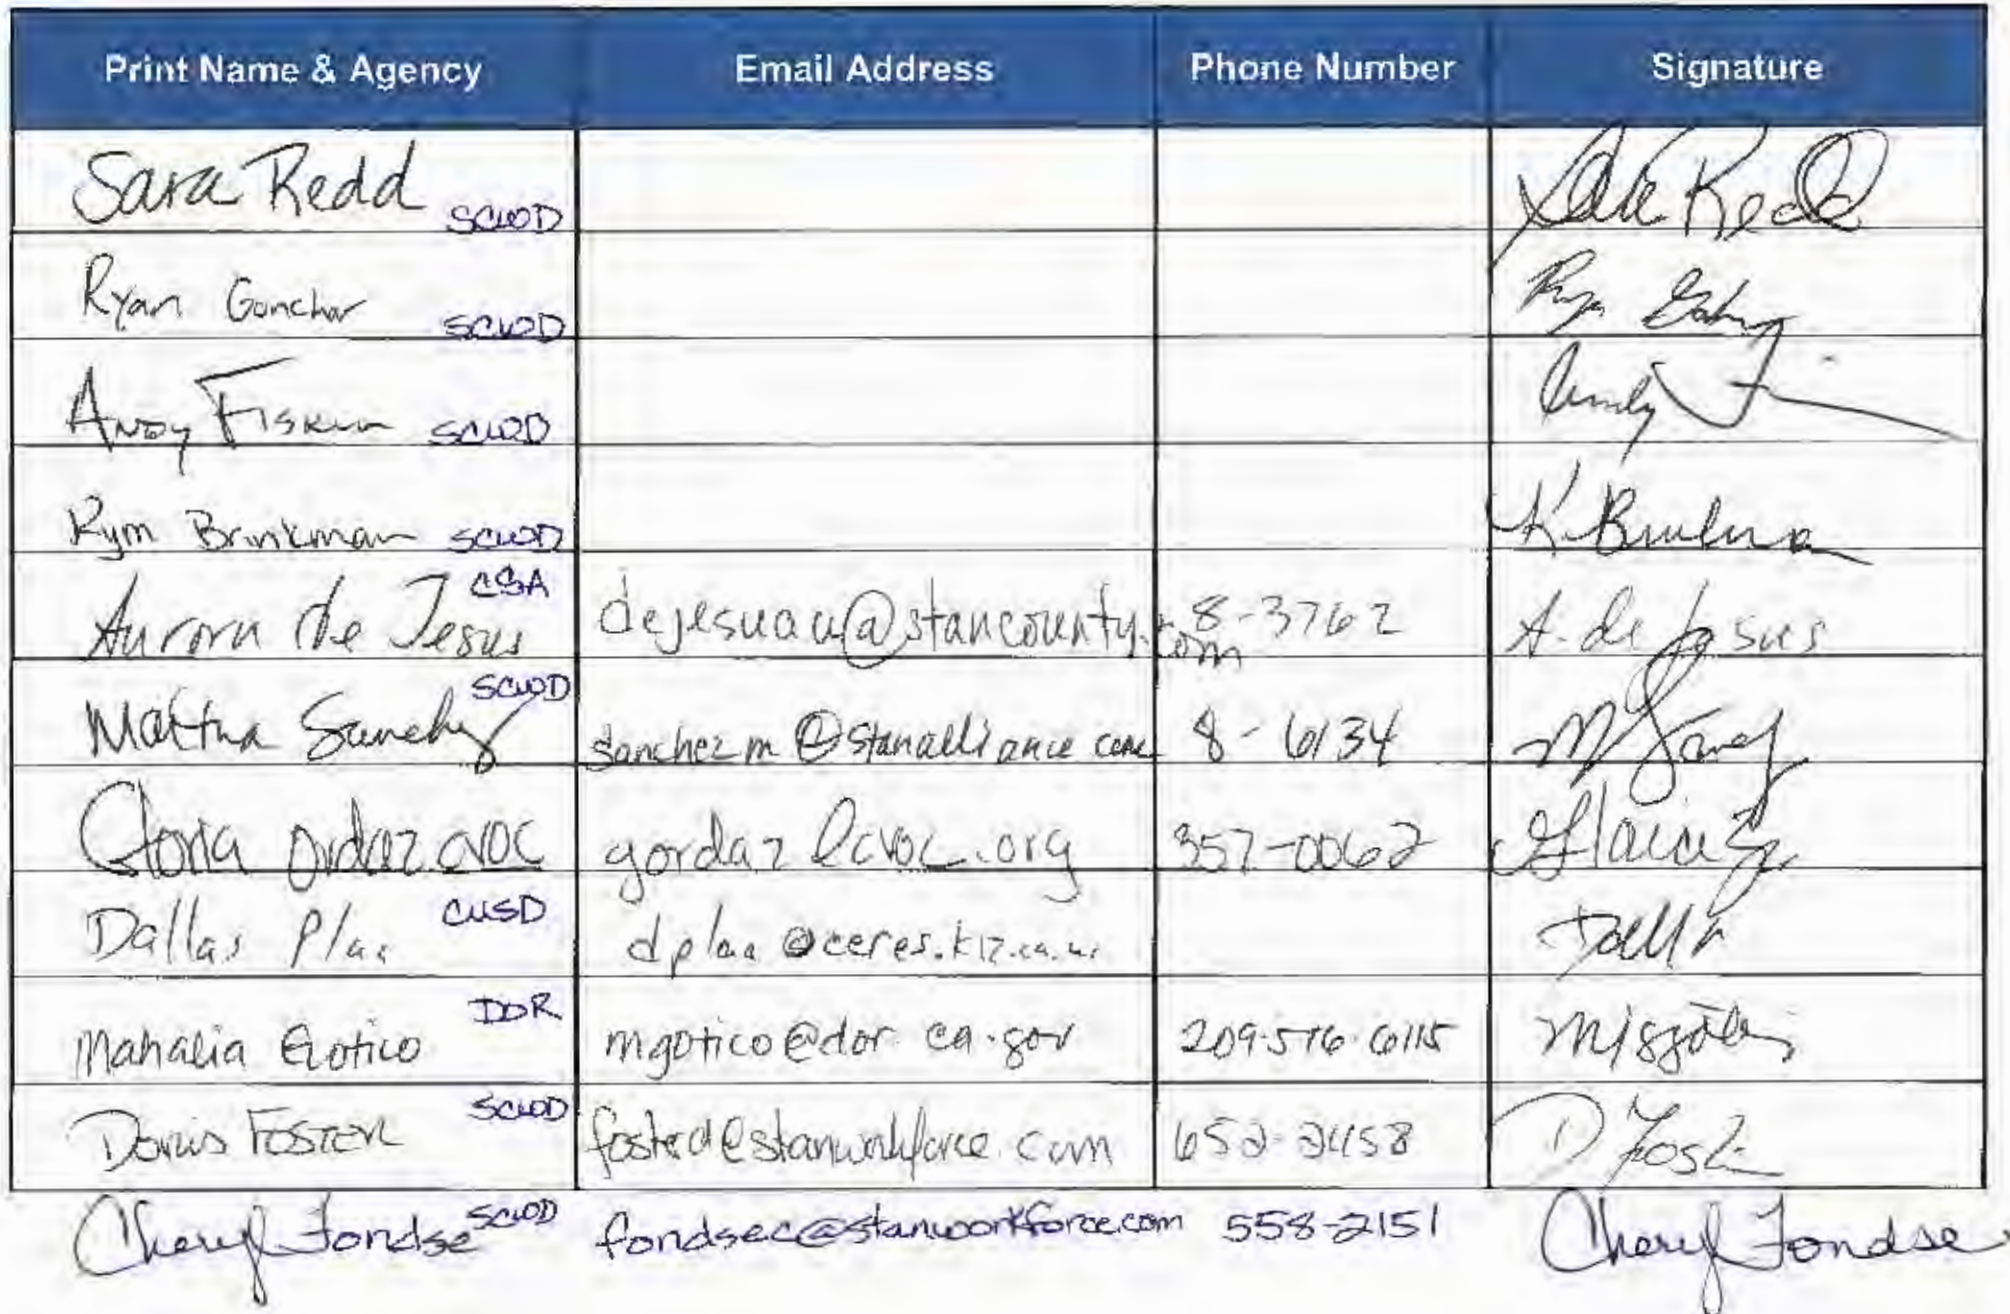 Print Name & Agency Email Address Phone Number Signature
Sara Redd SCWD Sara Redd
Ryan Gonchar SCWD Ryan
Andy Fiskum SCWD Andy
Kym Brinkman SCWD K. Brinkman
Aurora de Jesus CSA dejesuau@stancounty.com 8-3762 A. de Jesus
Martha Sanchez SCWD sanchezm@stanalliance.com 8-6134
Gloria Ordaz CVOC gordaz@cvoc.org 357-0062
Dallas Plaa CUSD dplaa@ceres.k12.ca.us
Mahalia Gotico DOR mgotico@dor.ca.gov 209.576.6115
Doris Foster SCWD fosterd@stanworkforce.com 652-2458 D Foster
Cheryl Fondse SCWD fondsec@stanworkforce.com 558-2151 Cheryl Fondse